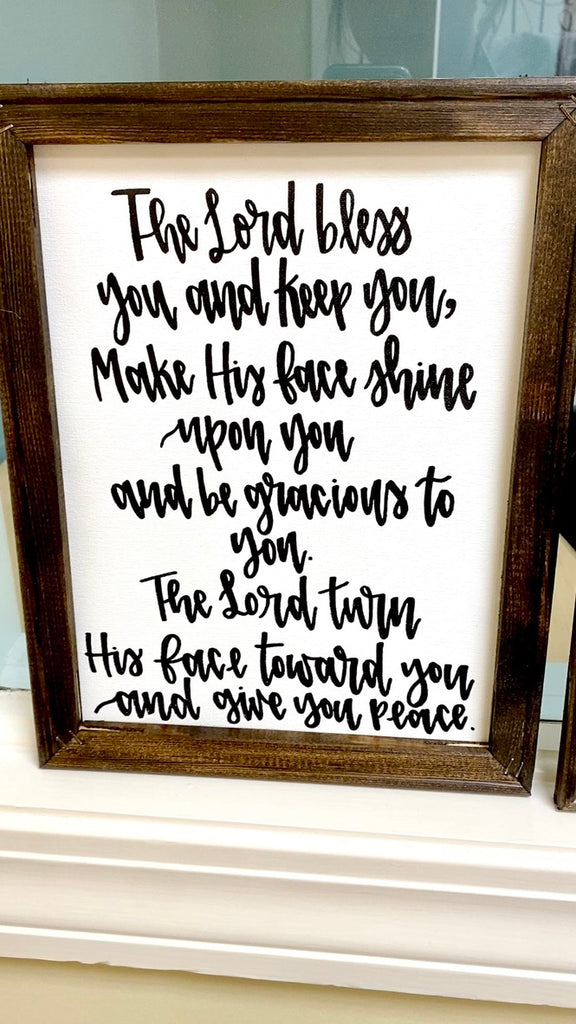 The Lord bless
you and keep you,
Make His face shine
upon you
and be gracious to
you.
The Lord turn
His face toward you
and give you peace.